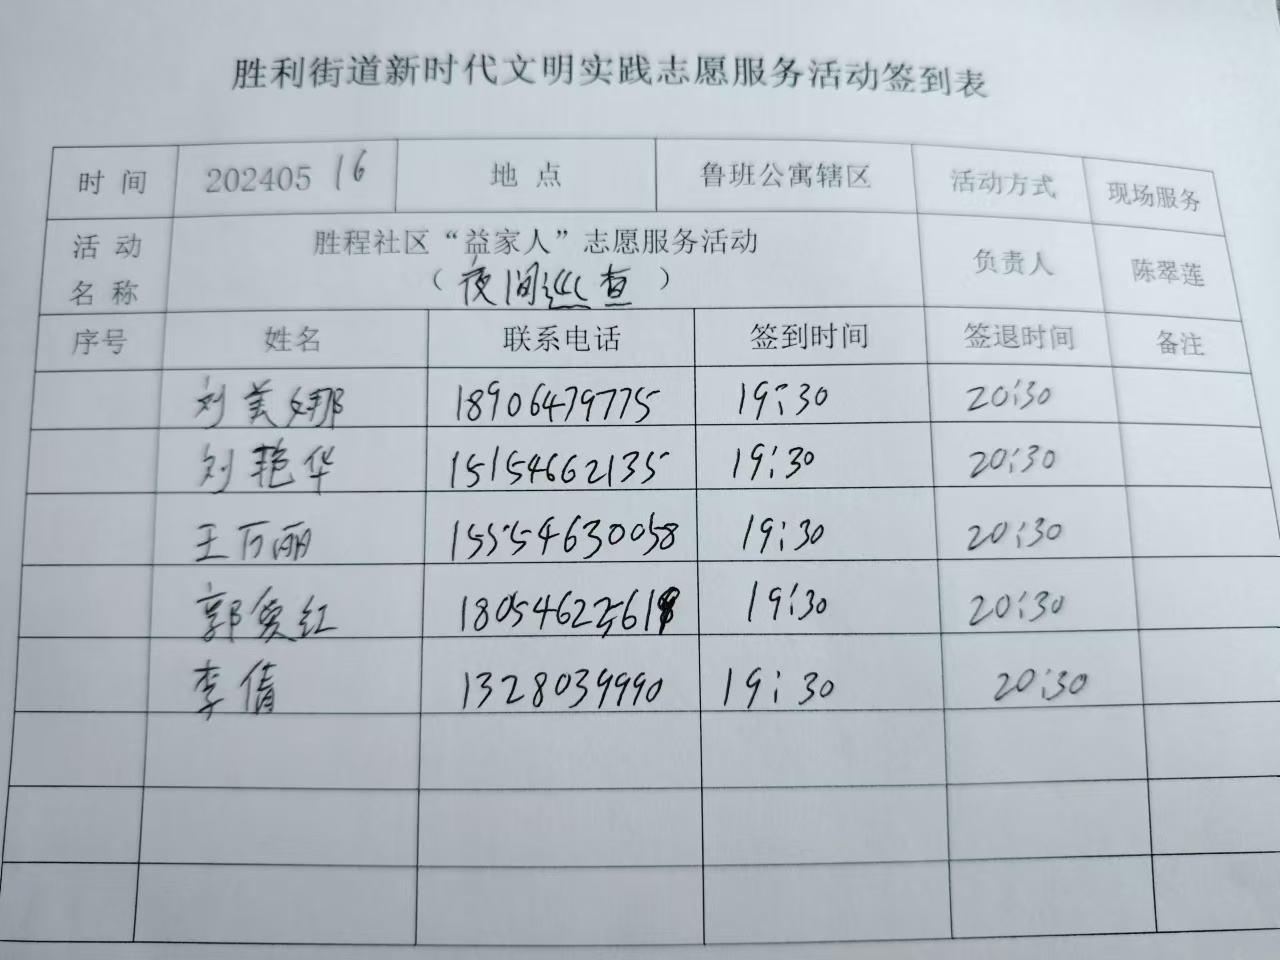 胜利街道新时代文明实践志愿服务活动签到表
时间 20240516 地点 鲁班公寓辖区 活动方式 现场服务
活动名称 胜程社区“益家人”志愿服务活动 负责人 陈翠莲
（夜间巡查）
序号 姓名 联系电话 签到时间 签退时间 备注
刘美娜 18906479775 19:30 20:30
刘艳华 15154662135 19:30 20:30
王万丽 15554630058 19:30 20:30
郭爱红 19:30 20:30
李倩 1328039990 19:30 20:30